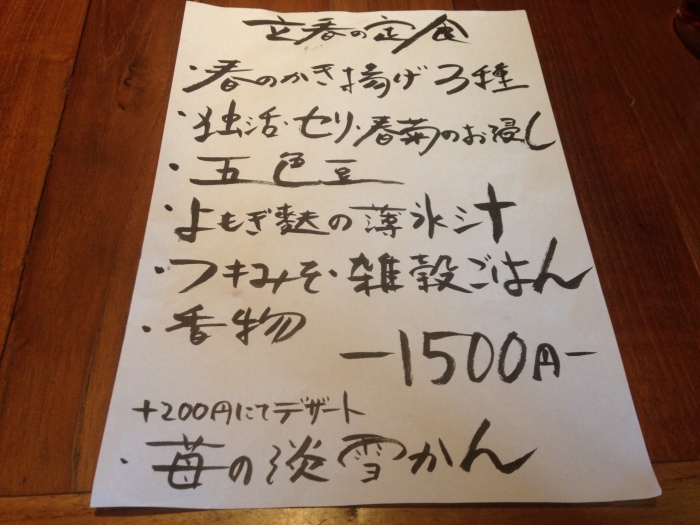 立春の定食
・春のかき揚げ3種
・独活・セリ・春菊のお浸し
・五色豆
・よもぎ麩の薄氷汁
・フキみそ・雑穀ごはん
・香物
－1500円－
+200円にてデザート
・苺の淡雪かん